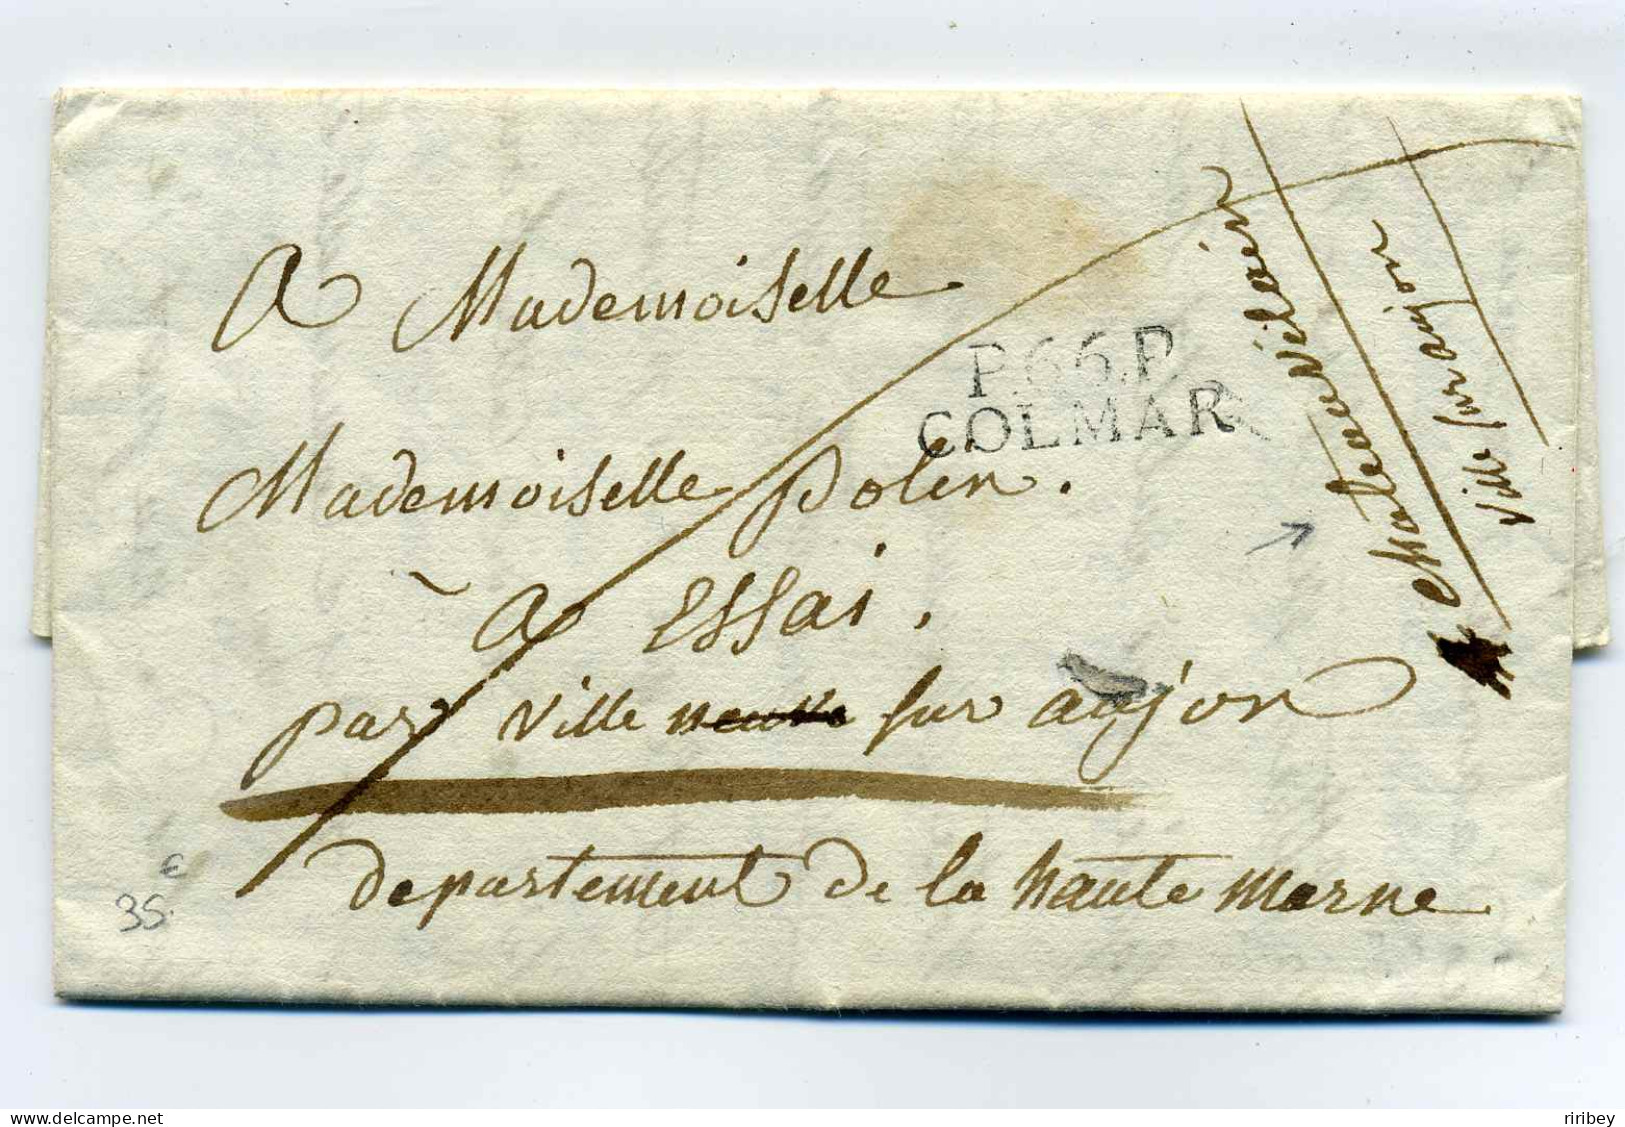 A Mademoiselle
P.66.P
COLMAR
Mademoiselle Polen.
à Essai.
par ville neuve sur aujon
departement de la haute marne
chateauvilain
ville sur aujon
35 €
delcampe.net
riribey